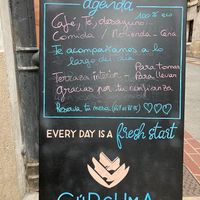 agenda
Café, Te, desayuno... 100% eco
Comida / Merienda - Cena
Te acompañamos a lo
largo del día
Terraza interior - Para tomar
Para llevar
gracias por tu confianza
Reserva tu mesa
EVERY DAY IS A fresh start
CÚRCUMA